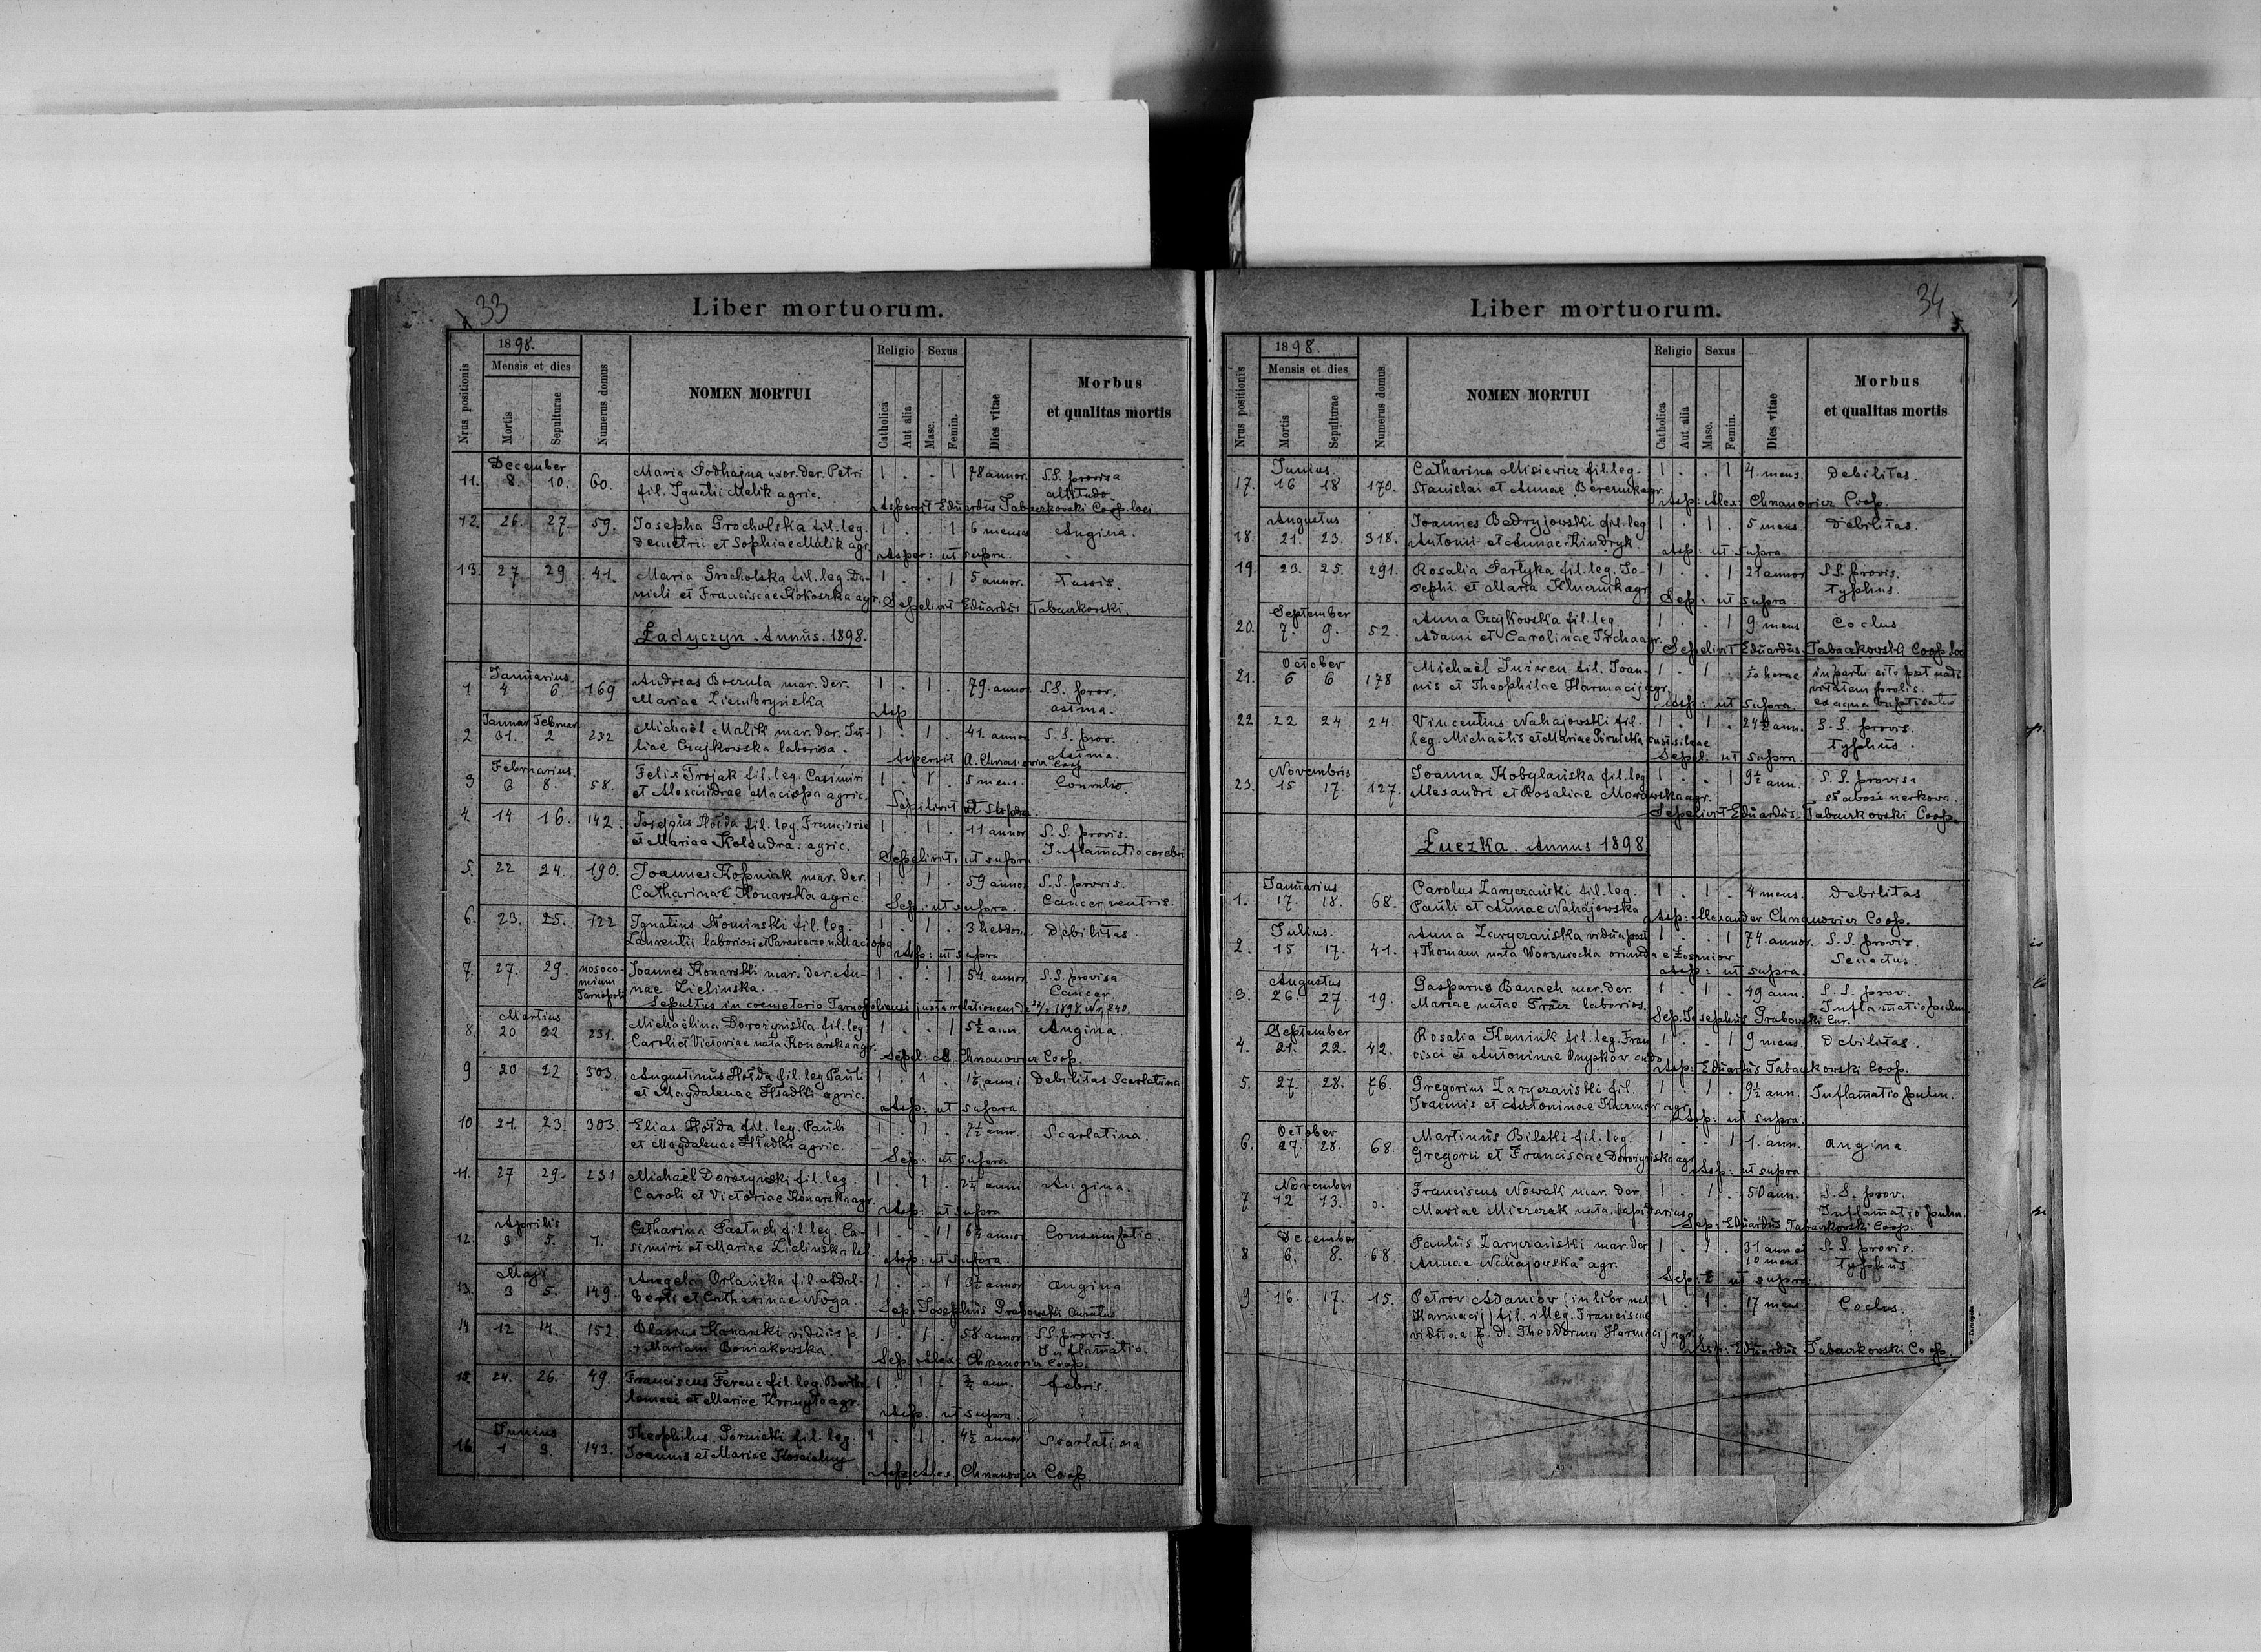 33
Liber mortuorum.
Nrus positionis
1898.
Mensis et dies
Mortis
Sepulturae
Numerus domus
NOMEN MORTUI
Religio
Catholica
Aut alia
Sexus
Masc.
Femin.
Dies vitae
Morbus
et qualitas mortis
December
11. 8. 10. 60. Maria Podhajna uxor. der. Petri 1 . . 1 78 annor. S.S. provisa
fil. Ignatii Malik agric. altitudo.
Aspersit Eduardus Tabaczkowski Coop. loci
12. 26. 27. 59. Josepha Grocholska fil. leg. 1 . . 1 6 menses Angina.
Demetrii et Sophiae Malik agr.
Asper: ut supra.
13. 27 29 41. Maria Grocholska fil. leg. Da- 1 . . 1 5 annor. Tussis.
nieli et Franciscae Kokoszka agr.
Sepelivit Eduardus Tabaczkowski.
Ładyczyn. Annus. 1898.
Januarius.
1 4 6. 169 Andreas Boczula mar. der. 1 . 1 . 79. annor S.S. prov.
Mariae Ziembryńska asima.
Asp
Januar Februar
2 31. 2 232 Michaël Malik mar. der. Ju- 1 . 1 . 41. annor S.S. prov.
liae Czajkowska laboriosa. Asima.
Aspersit A. Chnanovicz Coop
Februarius.
3 6 8. 58. Felix Trojak fil. leg. Casimiri 1 . 1 . 5 mens.
et Alexandrae Maciopa agric.
Sepelivit ut Supra
4. 14 16. 142. Josepus Hołda fil. leg. Franciscae 1 . 1 . 11 annor S.S. provis.
et Mariae Koldudra. agric. Inflamatio cerebri
Sepelivit: ut supra
5. 22 24. 190. Joannes Kopniak mar. der. 1 . 1 . 59 annor S.S. provis.
Catharinae Konarska agric. Cancer ventris.
Sep.: ut supra.
6. 23. 25. 122 Ignatius Słominski fil. leg. 1 . 1 . 3 hebdom. Debilitas
Laurentii laboriosi et Parascevae n. Maciopa
Asp: ut supra
7. 27. 29. nosoco- Joannes Konarski mar. der. An- 1 . 1 . 54 annor S.S. provisa
mium nae Zielinska. Cancer
Tarnopoli Sepultus in coemeterio Tarnopoliensi juxta relationem 1898. Nr. 240.
Martius
8. 20 22 231. Michaëlina Dorozyńska fil. leg. 1 . . 1 5½ ann. Angina
Caroli et Victoriae nata Konarska agr.
Sepel: Al. Chnanovicz Coop.
9 20 22 303. Augustinus Hołda fil. leg Pauli 1 . 1 . 1½ anni Debilitas Scarlatina
et Magdalenae Hładki agric.
Asp: ut supra
10 21. 23. 303. Elias Hołda fil. leg. Pauli 1 . 1 . 7½ ann. Scarlatina.
et Magdalenae Hładki agric.
Sep: ut supra
11. 27 29. 231 Michaël Dorozynski fil. leg. 1 . 1 . 2½ anni Angina.
Caroli et Victoriae Konarska agr.
Asp: ut supra
Aprilis
12. 3 5. 7. Catharina Pastuch fil. leg. Ca- 1 . . 1 6½ annor Consumptio
simiri et Mariae Zielinska lab.
Asp: ut supra.
Maji
13. 3 5. 149. Angela Orlańska fil. Adal- 1 . . 1 annor Angina
berti et Catharinae Noga.
Sep: Josephus Grabowski Curatus
14 12 14. 152. Blasius Konarski viduus p. 1 . 1 . 58 annor S.S. provis.
+ Mariam Boniakowska. Inflamatio.
Sep. Alex: Chnanovicz Coop.
15. 24. 26. 49. Franciscus Ferenc fil. leg. Bartho- 1 . 1 . ann. febris
lomaei et Mariae Kromyło agr.
Asp. ut supra.
Junius
16. 1 3. 143. Theophilus Pornicki fil. leg. 1 . 1 . 4½ annor Scarlatina
Joannis et Mariae Kościelny
Asp. Alex. Chnanovicz Coop.
34
5.
Liber mortuorum.
Nrus positionis
1898.
Mensis et dies
Mortis
Sepulturae
Numerus domus
NOMEN MORTUI
Religio
Catholica
Aut alia
Sexus
Masc.
Femin.
Dies vitae
Morbus
et qualitas mortis
Junius.
17. 16 18 170. Catharina Misiewicz fil. leg. 1 . . 1 4. mens. Debilitas.
Stanislai et Annae Bereznka agr.
Asp: Alex: Chnanovicz Coop.
Augustus
18. 21. 23. 318. Joannes Bedryjowski fil. leg 1 . 1 . 5 mens. Debilitas.
Antonii et Annae Kindryk.
Asp: ut supra
19. 23. 25. 291. Rosalia Partyka fil. leg. Jo- 1 . . 1 21 annor S.S. provis.
sephi et Maria Klucznik agr typhus.
Sep: ut supra.
September
20. 7. 9. 52. Anna Czajkowska fil. leg. 1 . . 1 9 mens Coclus.
Adami et Carolinae Trcha agr.
Sepelivit Eduardus Tabaczkowski Coop. loc
October
21. 6 6 178 Michaël Juzwen fil. Joan- 1 . 1 . ½ horae in partu cito post nati-
nis et Theophilae Harmacij agr. vitatem prolis.
Asp: ut supra. ex aqua baptisatus
22 22 24 24. Vincentius Nahajowski fil. 1 . 1 . 24½ ann. S.S. provis.
leg. Michaëlis et Mariae Pornicka typhus.
Sepel: ut supra.
Novembris
23. 15 17. 127. Joanna Kobylańska fil. leg 1 . . 1 9½ ann. S.S. provisa
Alexandri et Rosaliae Morawska agr.
Sepelivit Eduardus Tabaczkowski Coop.
Łuczka. Annus 1898
Januarius.
1. 17. 18. 68. Carolus Zaryczański fil. leg. 1 . 1 . 4 mens. Debilitas
Pauli et Annae Nahajowska
Asp: Alexander Chnanovicz Coop.
Julius.
2. 15 17. 41. Anna Zaryczańska vidua post 1 . . 1 74. annor. S.S. provis.
+ Thomam nata Woroniecka oriunda e Senectus.
Asp: ut supra.
Augustus
3. 26. 27. 19. Gasparus Banach mar. der. 1 . 1 . 49 ann. S.S. prov.
Mariae natae Fracz laborios. Inflamatio pulm.
Sep. Josephus Grabowski Cur.
September
4. 21. 22. 42. Rosalia Kaniuk fil. leg. Fran 1 . . 1 9 mens. Debilitas.
cisci et Antoninae Onyskow
Asp: Eduardus Tabaczkowski Coop.
5. 27. 28. 76. Gregorius Zaryczański fil. 1 . 1 . 9½ ann. Inflamatio pulm.
Joannis et Antoninae Kharmar agr
Asp: ut supra.
October
6. 27. 28. 68. Martinus Bilski fil. leg. 1 . . 1 1. ann. Angina.
Gregorii et Franciscae Dorozyńska agr
Asp: ut supra
November
7 12 13. 0. Franciscus Nowak mar. der. 1 . 1 . 50 ann. S.S. prov.
Mariae Miszczak nata. lapidarius Inflamatio pulm.
Sep: Eduardus Tabaczkowski Coop.
December
8 6. 8. 68. Paulus Zaryczański mar. der 1 . 1 . 31 annoi S.S. provis.
Annae Nahajowska agr. 10 mens. typhus.
Sep: ut supra.
9 16. 17. 15. Petrov Adamov (in libr. nat 1 . 1 . 17 mens. Coclus.
Harmacij) fil. illeg. Franciscae
viduae p. d. Theodorum Harmacij agr.
Asp: Eduardus Tabaczkowski Coop.